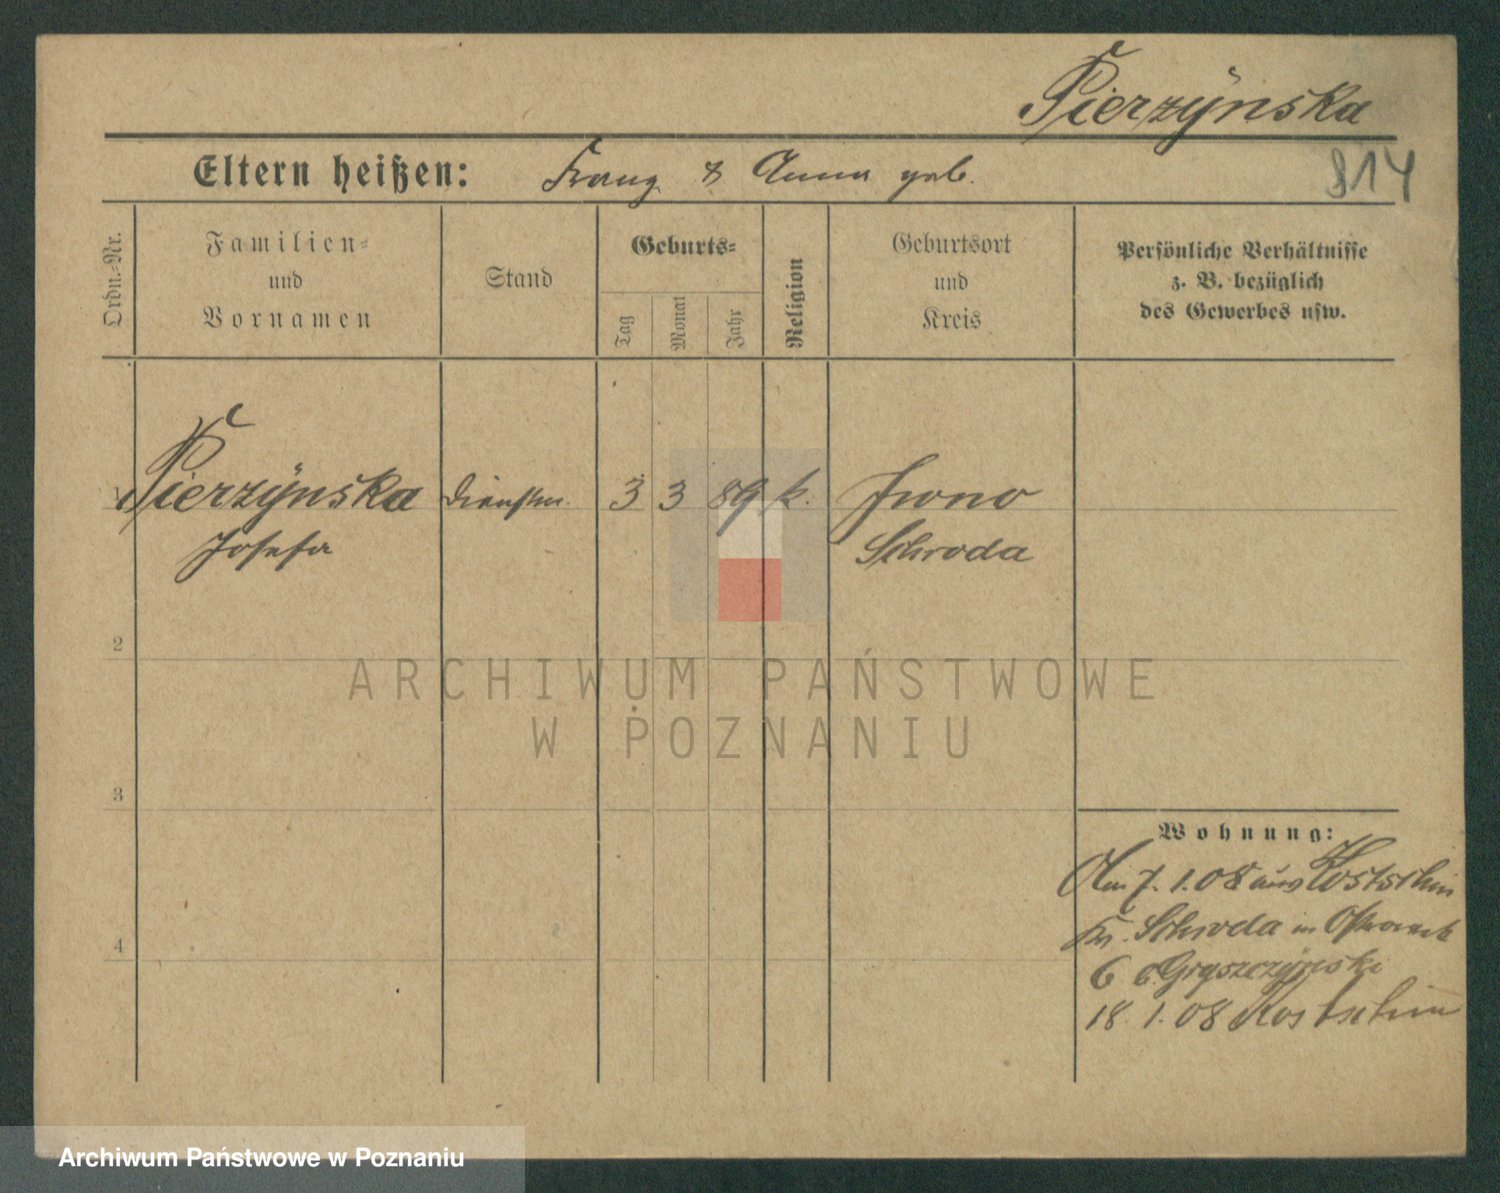 Pierzÿnska
Eltern heißen: Franz & Anna geb.
814
Ordn.-Nr.
Familien-
und
Vornamen
Stand
Geburts-
Tag
Monat
Jahr
Religion
Geburtsort
und
Kreis
Persönliche Verhältnisse
z. B. bezüglich
des Gewerbes usw.
1 Pierzÿnska Dienstm. 3 3 89 k.
Josefa
Schroda
2
ARCHIWUM PAŃSTWOWE
W POZNANIU
3
Wohnung:
Am 7. 1. 08 aus Kostschin
Kr. Schroda in
6 b. Gryszczÿnski
18. 1. 08 Kostschin
4
Archiwum Państwowe w Poznaniu